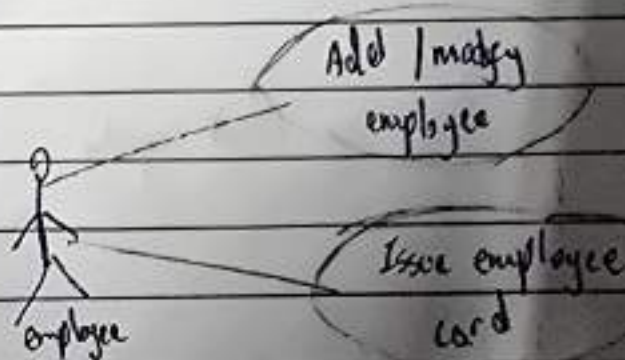 Add / modify
employee
Issue employee
card
employee